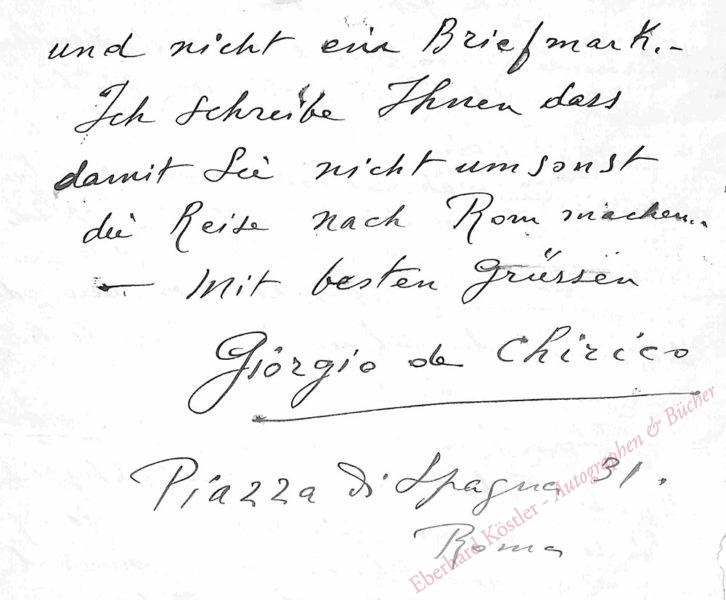 und nicht ein Briefmark.-
Ich schreibe Ihnen dass
damit Sie nicht umsonst
die Reise nach Rom machen..
— Mit besten Grüssen
Giorgio de Chirico
Piazza di Spagna 31.
Roma
Eberhard Köstler - Autographen & Bücher